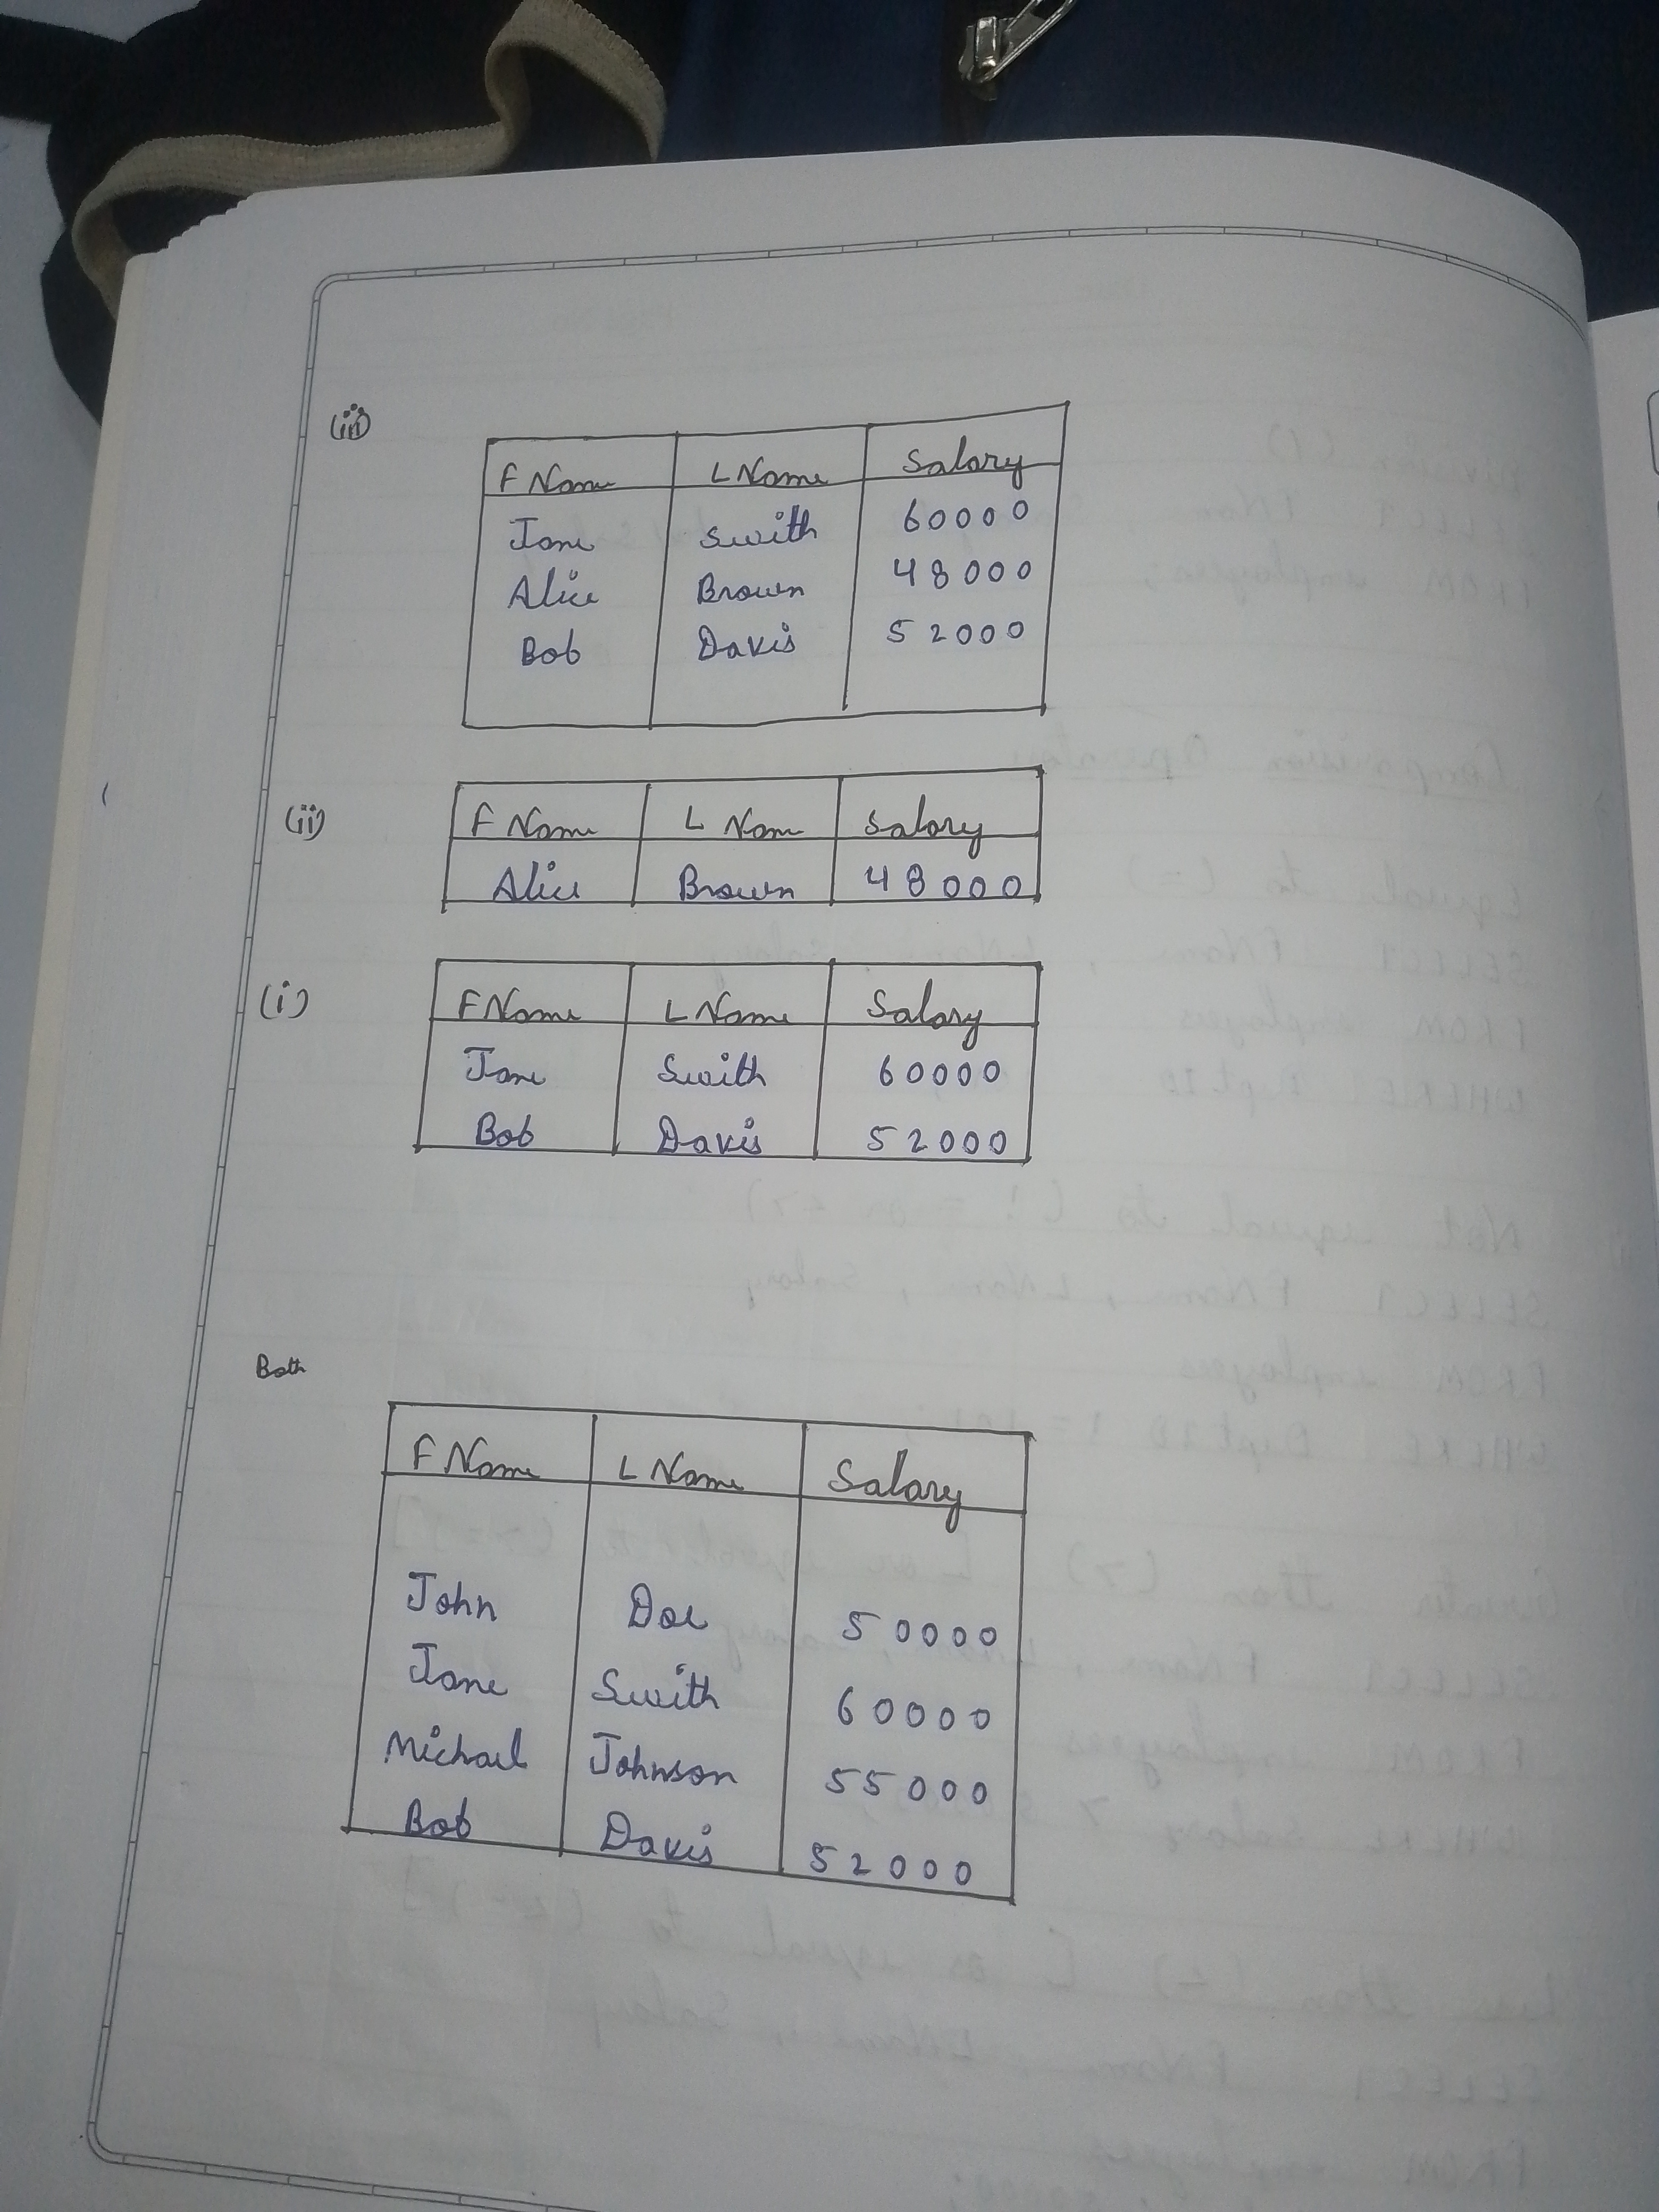 (iii)
F Name L Name Salary
Jane Swith 60000
Alice Brown 48000
Bob Davis 52000
(ii)
F Name L Nam Salary
Alice Brown 48000
(i)
F Name L Name Salary
Jane Swith 60000
Bob Davis 52000
Both
F Name L Name Salary
John Doe 50000
Jane Swith 60000
Michael Johnson 55000
Bob Davis 52000